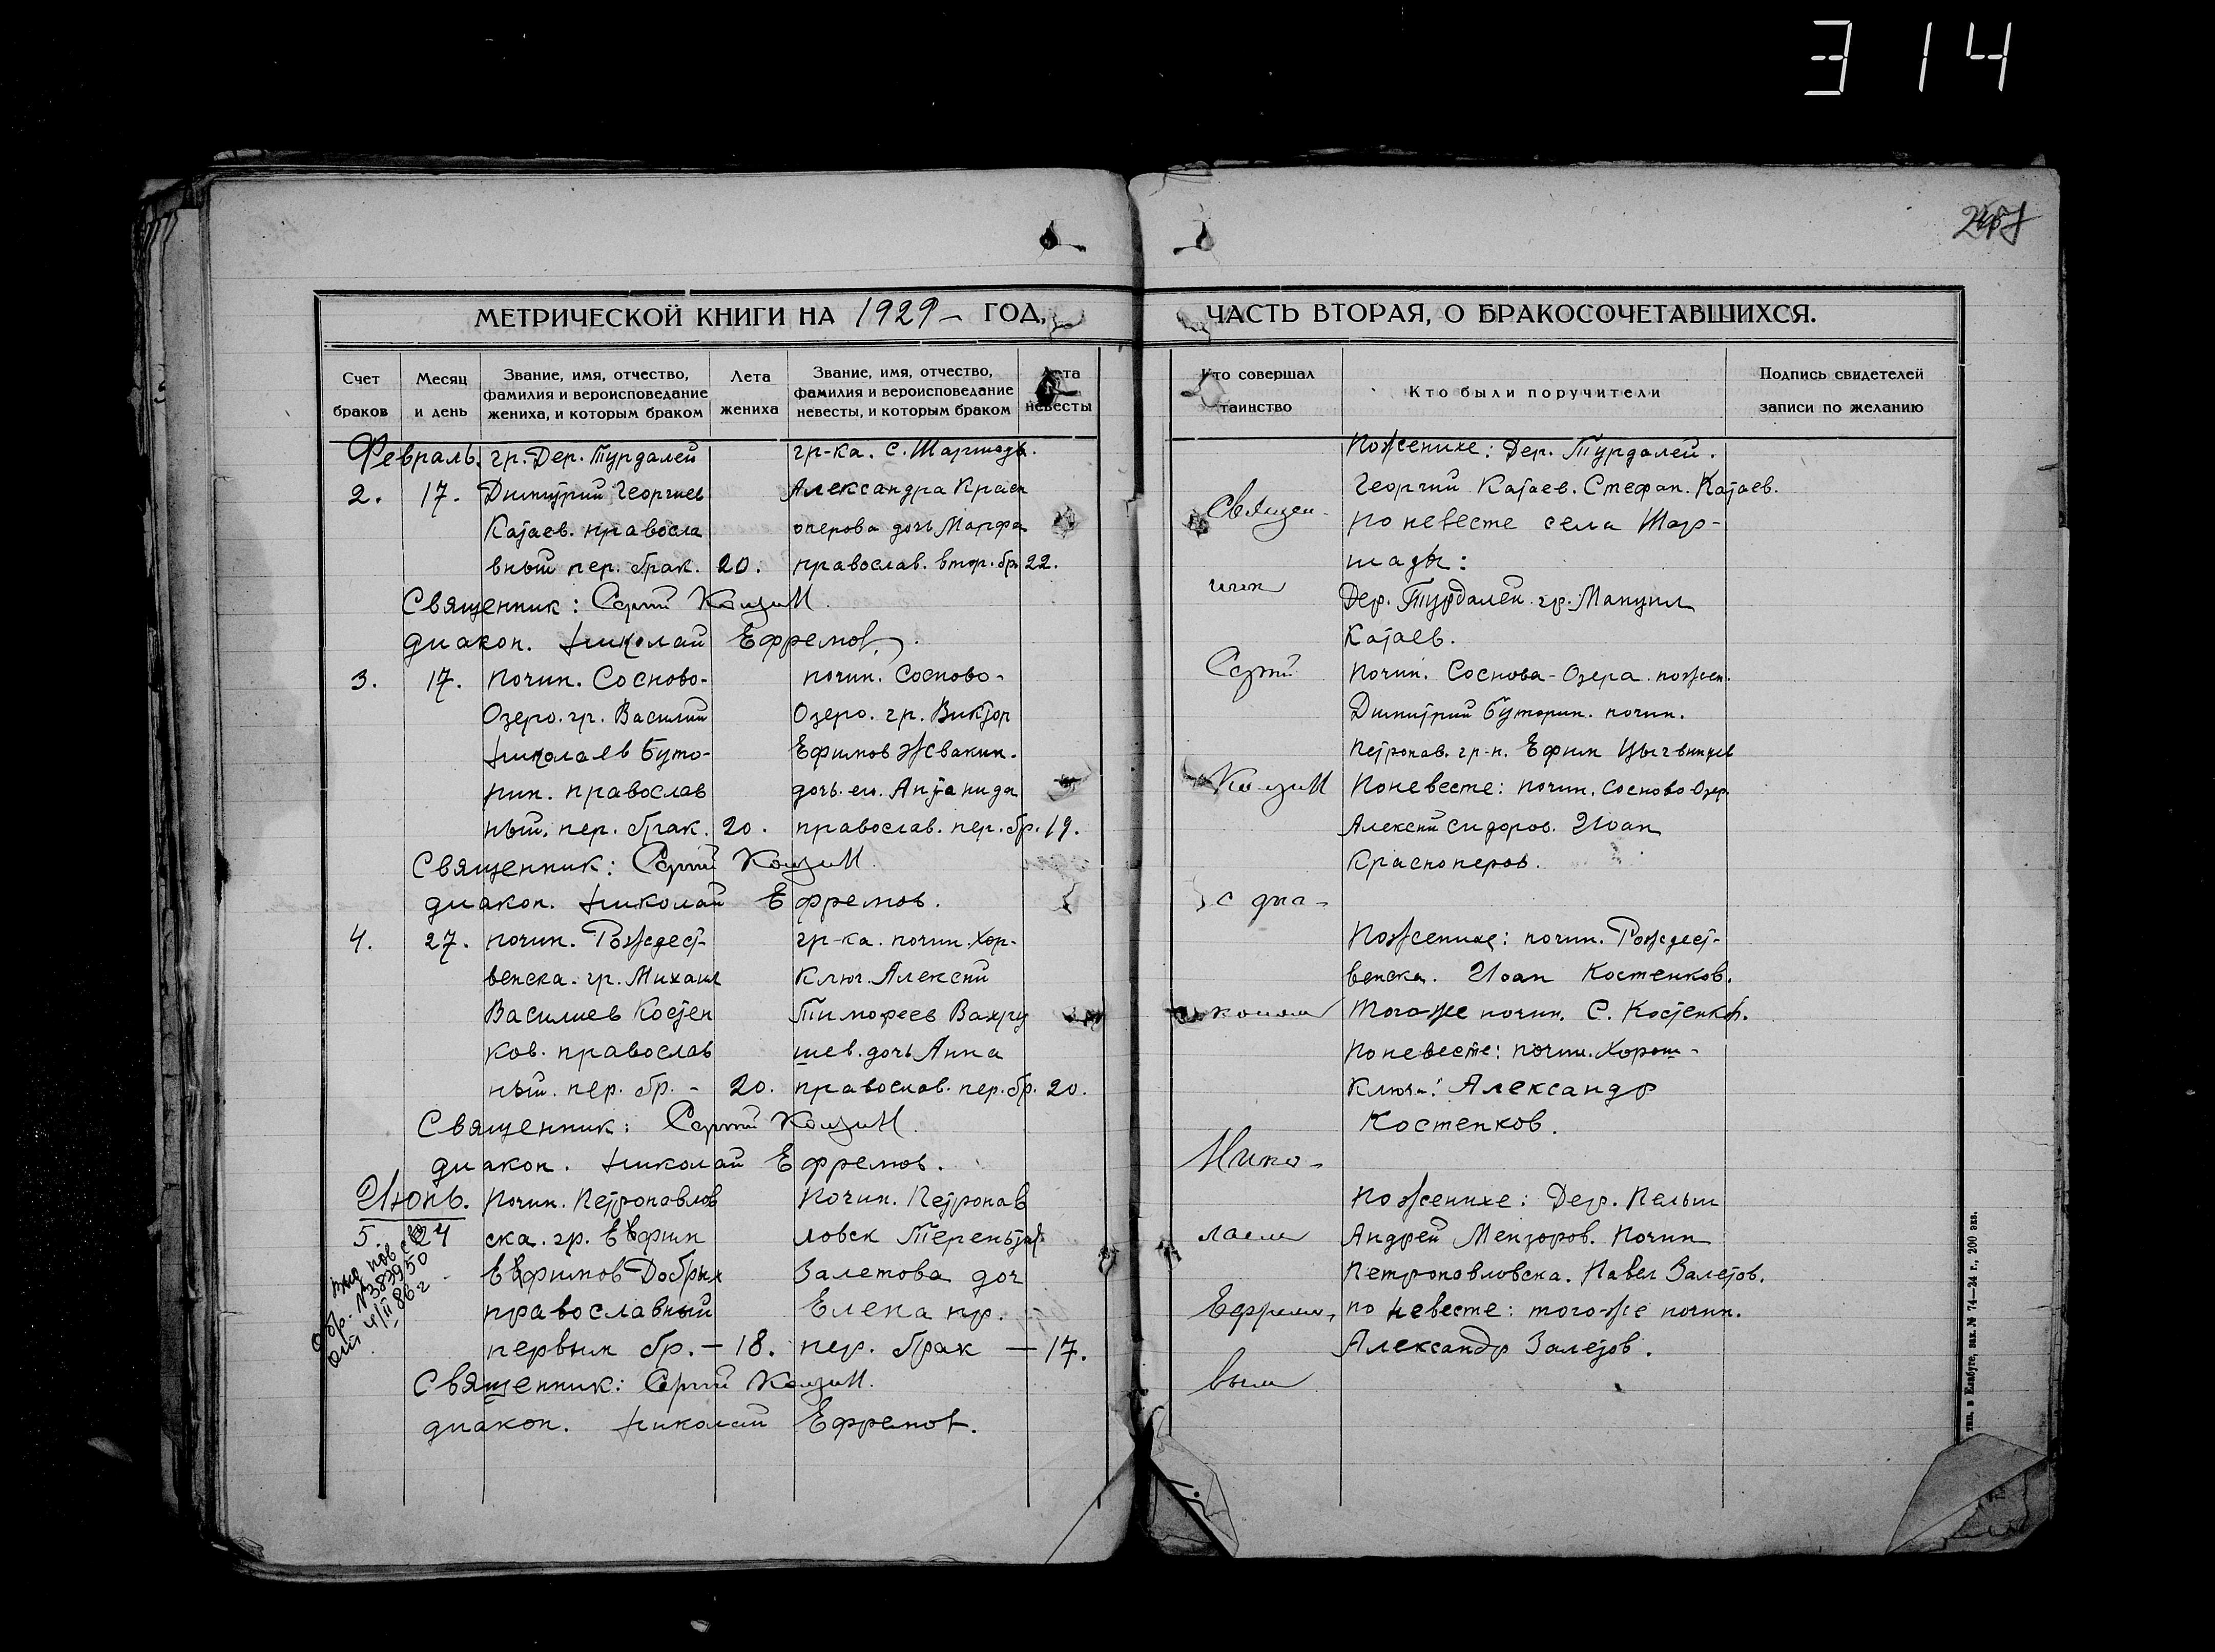 314
МЕТРИЧЕСКОЙ КНИГИ НА 1929 – ГОД,
ЧАСТЬ ВТОРАЯ, О БРАКОСОЧЕТАВШИХСЯ.
Счет браков
Месяц и день
Звание, имя, отчество, фамилия и вероисповедание жениха, и которым браком
Лета жениха
Звание, имя, отчество, фамилия и вероисповедание невесты, и которым браком
Лета невесты
Кто совершал таинство
Кто были поручители
Подпись свидетелей записи по желанию
Февраль.
2. 17.
гр. Дер. Турдалей
Димитрий Георгиев
Катаев. правосла
вный пер. брак. 20.
гр-ка. С. Шаршады.
Александра Красн
оперова дочь Марфа
православ. втор. бр. 22.
Священник: Сергий
диакон. Николай Ефремов.
3. 17.
почин. Сосново-
Озеро. гр. Василий
Николаев Буто-
рин. православ
ный. пер. брак. 20.
почин. Сосново-
Озеро. гр. Виктор
Ефимов Жвакин.
дочь. ею.
православ. пер. бр. 19.
Священник: Сергий
диакон. Николай Ефремов.
4. 27.
почин. Рождест-
венска. гр. Михаил
Василиев Костен
ков. православ
ный. пер. бр. – 20.
гр-ка. почин. Хор-
Ключ. Алексий
Тимофеев Вахру
шев. дочь Анна
православ. пер. бр. 20.
Священник: Сергий
диакон. Николай Ефремов.
Июнь.
5. 24
Почин. Петропавлов
ска. гр. Ефим
Ефимов Добрых
православный
первым бр. – 18.
Почин. Петропав
ловск Терентья
Залетова доч
Елена пр.
пер. брак – 17.
Священник: Сергий
диакон. Николай Ефремов.
№ 383950
4/II 86 г
Священ-
ник
Сергий
с диа-
коном
Нико-
лаем
Ефремо-
вым
По женихе: Дер. Турдалей.
Георгий Катаев. Стефан. Катаев.
по невесте села Шар-
шады:
Дер. Турдалей. гр. Мануил
Катаев.
Почин. Соснова-Озера. по жен.
Димитрий Буторин. почин.
Петропав. гр-н. Ефим
По невесте: почин. Сосново-Озер.
Алексий Сидоров. Иоан
Красноперов.
По женихе: почин. Рождест-
венска. Иоан Костенков.
Того же почин. С. Костенков.
По невесте: почин. Хорош-
Ключа: Александр
Костенков.
По женихе: Дер. Пельги
Андрей Мензоров. Почин
Петропавловска. Павел Залетов.
по невесте: того-же почин.
Александр Залетов.
тип. в Елабуге, зак. № 74—24 г., 200 экз.